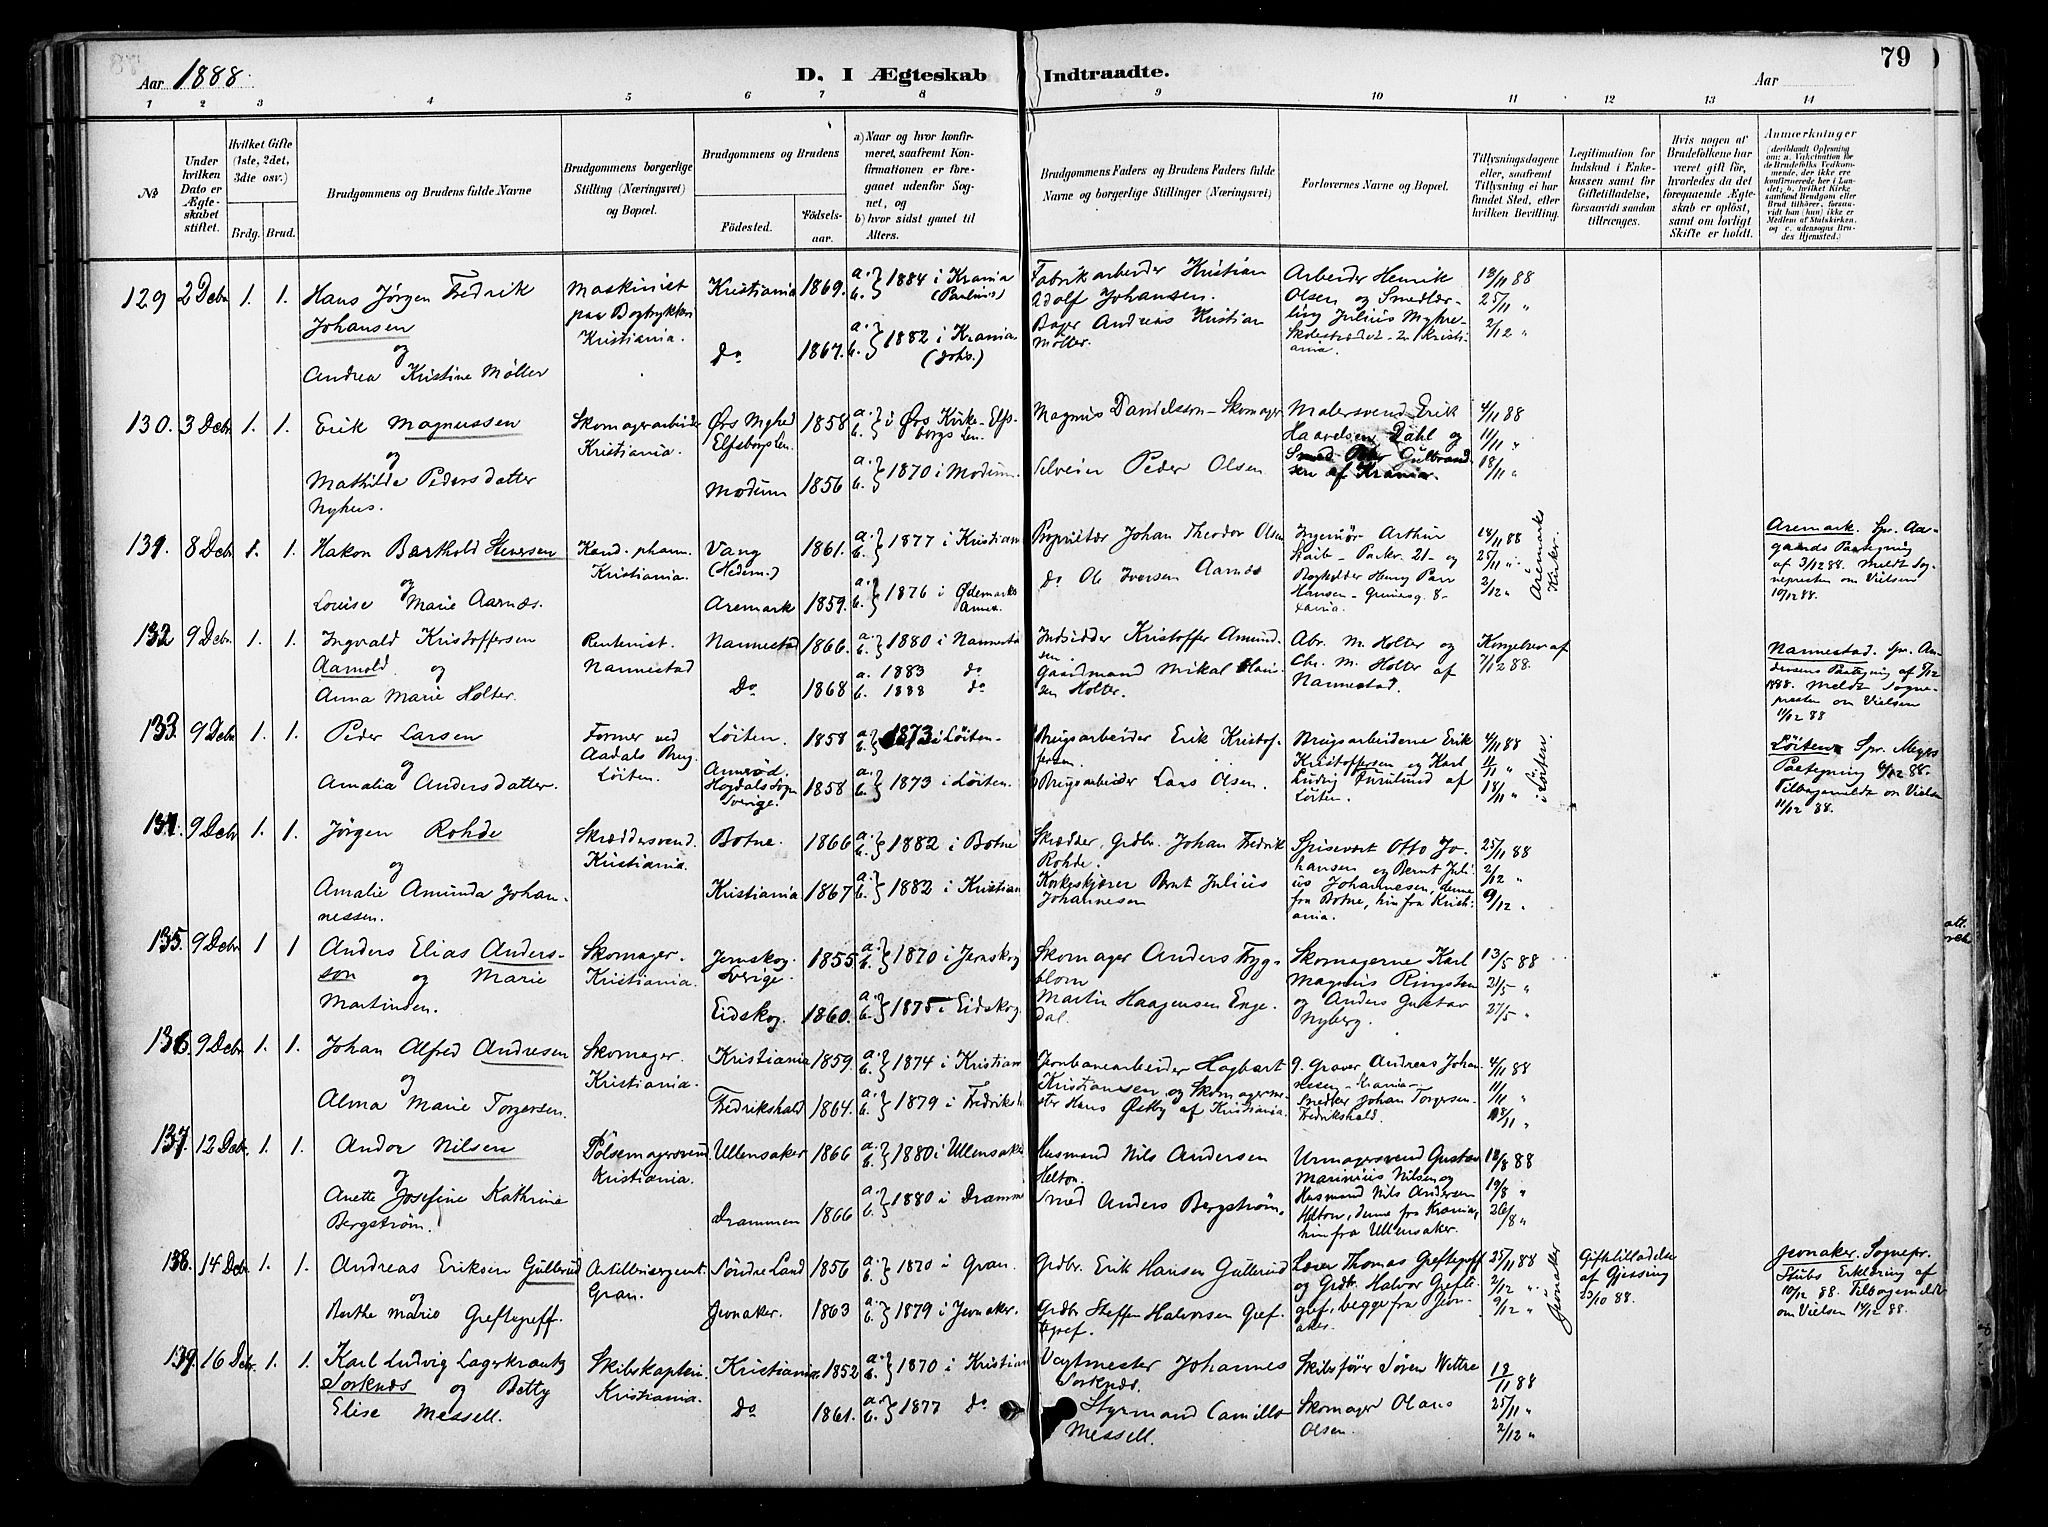 Aar 1888.
D. I Ægteskab Indtraadte.
79
Aar
1 2 3 4 5 6 7 8 9 10 11 12 13 14
No
Under hvilken Dato er Ægteskabet stiftet.
Hvilket Gifte (1ste, 2det, 3die osv.)
Brdg. Brud.
Brudgommens og Brudens fulde Navne
Brudgommens borgerlige Stilling (Næringsvei) og Bopæl.
Brudgommens og Brudens
Födested.
Födselsaar.
a) Naar og hvor konfirmeret, saafremt Konfirmationen er foregaaet udenfor Sognet, og
b) hvor sidst gaaet til Alters.
Brudgommens Faders og Brudens Faders fulde Navne og borgerlige Stillinger (Næringsvei)
Forlovernes Navne og Bopæl.
Tillysningsdagene eller, saafremt Tillysning ei har fundet Sted, efter hvilken Bevilling.
Legitimation for Indskud i Enkekassen samt for Giftetilladelse, forsaavidt saadan tiltrænges.
Hvis nogen af Brudefolkene har været gift før, hvorledes da det foregaaende Ægteskab er opløst, samt om lovligt Skifte er holdt.
Anmærkninger
129 2 Decbr 1. 1. Hans Jørgen Fredrik Johansen og Andrea Kristine Møller
Maskinist paa Bogtrykkeri Kristiania.
Kristiania 1869. a. b. } 1884 i Krania (Paulus)
do 1867. a. b. } 1882 i Krania (Johs.)
Fabrikarbeider Kristian Adolf Johansen.
Bager Andreas Kristian Møller.
Arbeider Henrik Olsen og Smedlærling Julius Myhre - Skolestrædet - 2 Kristiania.
18/11 88 25/11 " 2/12 "
130. 3 Decbr 1. 1. Erik Magnussen og Mathilde Pedersdatter Nyhus.
Skomagerarbeider Kristiania.
Ørs Myhed Elfsborgs Len. 1858 a. b. } i Ørs Kirke - Elfsborgs Len.
Modum 1856 a. b. } 1870 i Modum.
Magnus Danielsson - Skomager
Selveier Peder Olsen
Malersvend Erik Haavelsen Dahl og Smed Peter Gulbrandsen af Krania.
4/11 88 11/11 " 18/11 "
131. 8 Decbr 1. 1. Hakon Barthold Iversen og Louise Marie Aarnæs.
Kand. pharm. Kristiania.
Vang (Hedem.) 1861. a. b. } 1877 i Kristiania
Aremark 1859. a. b. } 1876 i Ødemarks Annex.
Proprietær Johan Theodor Olsen
do Ole Iversen Aarnæs
Ingeniør Arthur - Parkv. 21 - og Bogholder Henry Parr Hansen - Grønlsg. 8 - Xania.
18/11 88 25/11 " 2/12 " Aremarks Kirke.
Aremark. Spr. Aagaards Paategning af 3/12 88. Meldt Sognepresten om Vielsen 10/12 88.
132 9 Decbr. 1. 1. Ingvald Kristoffersen Aarnold og Anna Marie Holter.
Rentenist Nannestad
Nannestad 1866. a. b. } 1880 i Nannestad
Do 1868 a. 1883 do b. 1888 do
Indsidder Kristoffer Amundsen.
Gaardmand Mikal Hansen Holter.
Abr. M. Holter og Chr. M. Holter af Nannestad.
Kongebrev af 7/12 88.
Nannestad. Spr. Andersens Paategning af 7/12 1888. Meldt Sognepresten om Vielsen 11/12 88
133. 9 Decbr 1. 1. Peder Larsen og Amalia Andersdatter.
Former ved Aadals Brug Løiten.
Løiten. 1858 a. b. } 1873 i Løiten -
Amrød. Hogdals Sogn Sverige. 1858 a. b. } 1873 i Løiten.
Brugsarbeider Erik Kristoffersen.
Brugsarbeider Lars Olsen.
Brugsarbeiderne Erik Kristoffersen og Karl Ludvig Furulund af Løiten.
4/11 88 11/11 " 18/11 " i Løiten.
Løiten. Spr. Meyers Paategning 6/12 88. Tilbagemeldt om Vielsen 11/12 88.
134. 9 Decbr 1. 1. Jørgen Rohde og Amalie Amunda Johannessen.
Skræddersvend. Kristiania.
Botne. 1866 a. b. } 1882 i Botne
Kristiania 1867 a. b. } 1882 i Kristiania
Skrædder, Grdbr. Johan Fredrik Rohde.
Korkeskjærer Bernt Julius Johannesen
Spisevært Otto Johansen og Bernt Julius Johannesen, denne fra Botne, hin fra Kristiania.
25/11 88 2/12 " 9/12 "
135. 9 Decbr 1 1 Anders Elias Andersson og Marie Martinsen.
Skomager. Kristiania.
Jernskog. Sverige. 1855 a. b. } 1870 i Jernskog
Eidskog. 1860. a. b. } 1875 i Eidskog
Skomager Anders Trygblom
Martin Haagensen Engedal.
Skomagerne Karl Magnus Ringsten og Anders Gustav Nyberg.
13/5 88 21/5 " 27/5 "
136. 9 Decbr 1. 1. Johan Alfred Andresen og Alma Marie Torgersen.
Skomager. Kristiania.
Kristiania 1859. a. b. } 1874 i Kristiania
Fredrikshald 1864. a. b. } 1879 i Fredriksh
Jernbanearbeider Hagbart Kristiansen og Skomagermester Hans Østby af Kristiania.
Graver Andreas Johannesen - Krania - Snedker Johan Torgersen - Fredrikshald.
4/11 88 11/11 " 18/11 "
137. 12 Decbr. 1. 1. Andor Nilsen og Anette Josefine Kathrine Bergstrøm.
Pølsemagersvend. Kristiania.
Ullensaker 1866 a. b. } 1880 i Ullensaker
Drammen 1866 a. b. } 1880 i Drammen
Husmand Nils Andersen Helton.
Smed Anders Bergstrøm.
Urmagersvend Gustav Marinius Nilsen og Husmand Nils Andersen Helton, denne fra Krania, hin fra Ullensaker.
12/8 88 19/8 " 26/8 "
138. 14 Decbr. 1. 1. Andreas Eriksen Gullerud og Berthe Marie Greftegreff.
Artillerisergent. Gran.
Søndre Land 1856 a. b. } 1870 i Gran.
Jevnaker. 1863 a. b. } 1879 i Jevnaker.
Grdbr. Erik Hansen Gullerud
Grdbr. Steffen Halvorsen Greftegref.
Lærer Thomas Greftegreff og Grdbr. Halvor Greftegref, begge fra Jevnaker.
25/11 88 2/12 " 9/12 " Jevnaker
Giftetilladelse af Gjessing 23/10 88.
Jevnaker. Sognepr. Stubs Erklæring af 10/12 88. Tilbagemeldt om Vielsen 14/12 88.
139. 16 Decbr. 1. 1. Karl Ludvig Lagerkrantz Torknæs og Betty Elise Messell.
Skibskaptein Kristiania.
Kristiania. 1852 a. b. } 1870 i Kristiania
do 1861. a. b. } 1877 do
Vagtmester Johannes Torknæs.
Styrmand Camillo Messell.
Skibsfører Søren Wettre
Skomager Olaus Olsen.
18/11 88 25/11 " 2/12 "